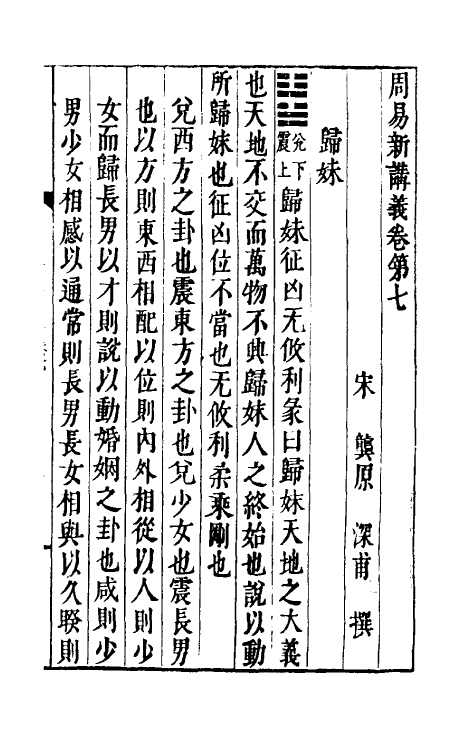 周易新講義卷第七
宋 龔原 深甫 撰
歸妹
兌下
震上
歸妹征凶无攸利彖曰歸妹天地之大義
也天地不交而萬物不興歸妹人之終始也說以動
所歸妹也征凶位不當也无攸利柔乘剛也
兌西方之卦也震東方之卦也兌少女也震長男
也以方則東西相配以位則內外相從以人則少
女而歸長男以才則說以動婚姻之卦也咸則少
男少女相感以通常則長男長女相與以久睽則